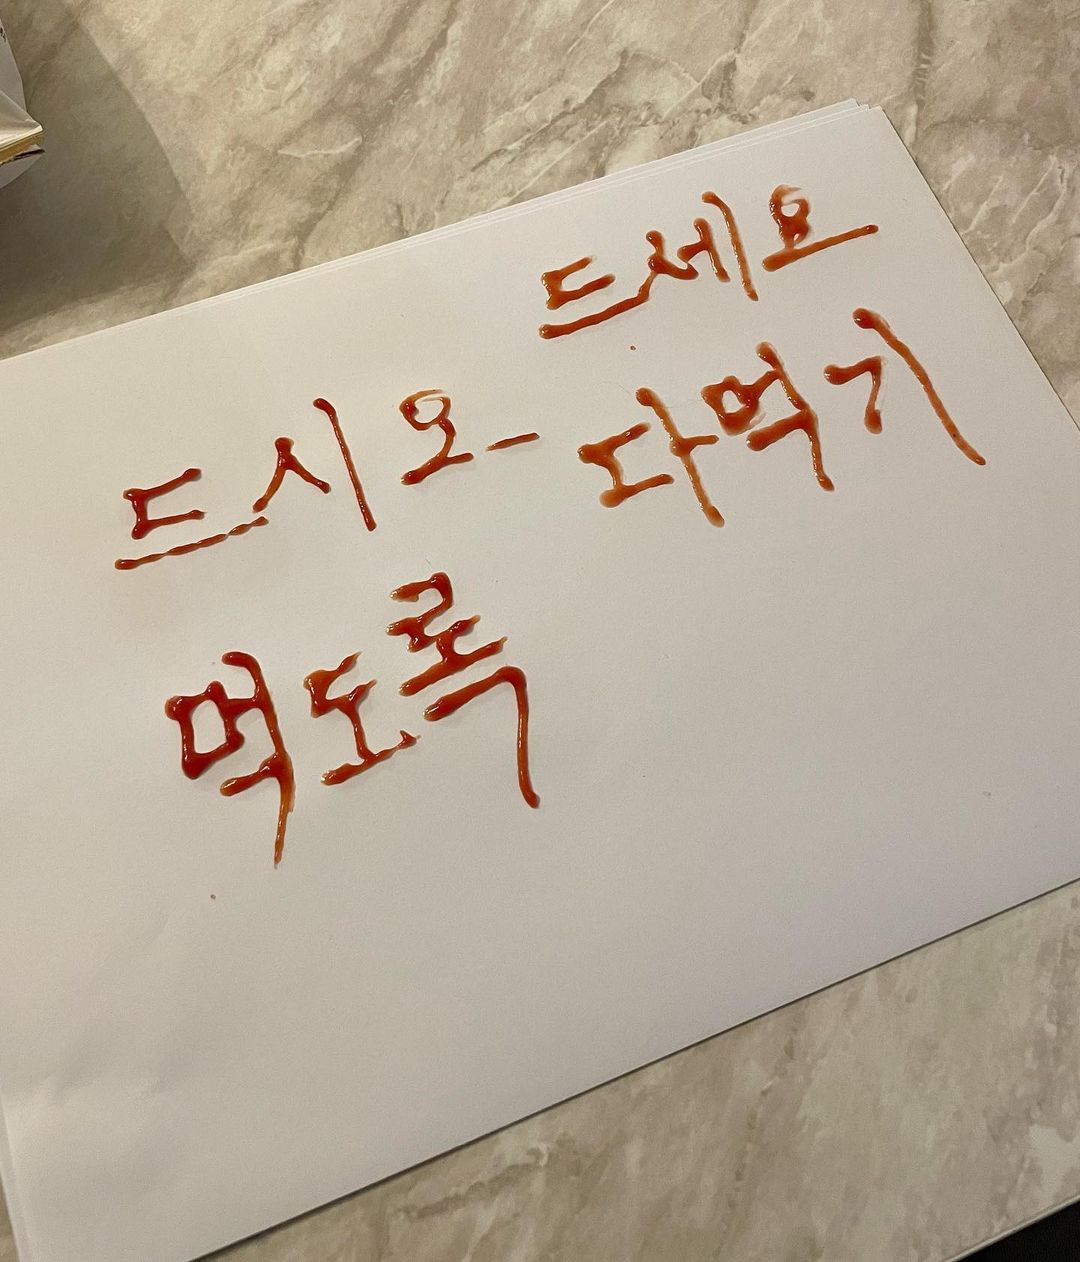 드세요
드시오- 다먹기
먹도록